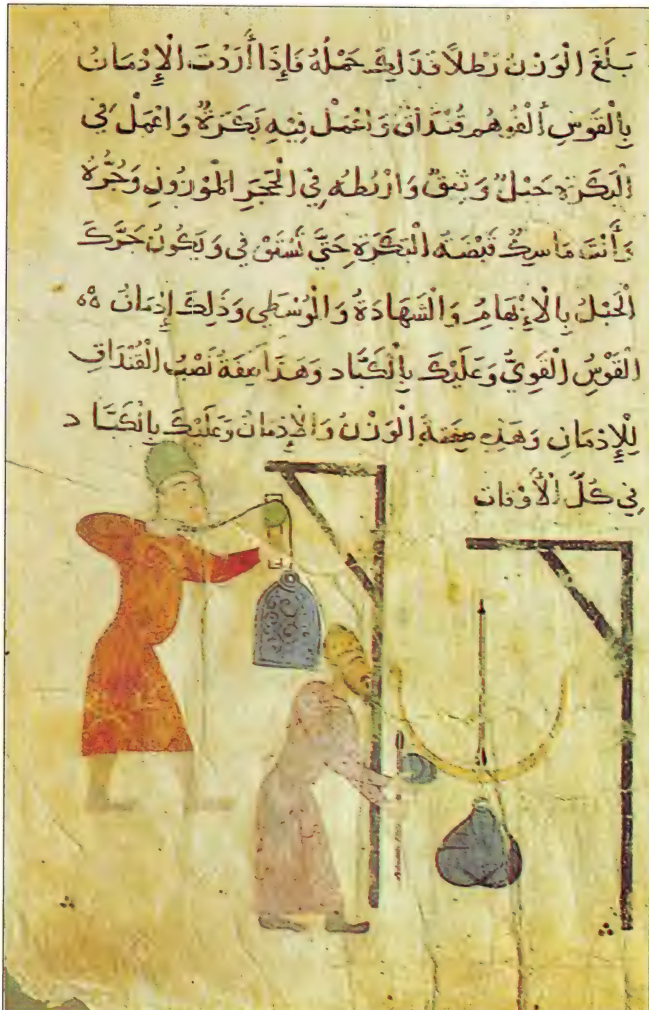 بَلَغَ الْوَزْنُ رَطْلًا فَذَلِكَ حَمْلُهُ فَإِذَا أَرَدْتَ الْإِدْمَانُ
بِالْقَوْسِ وَاعْمَلْ فِيهِ بَكَرَةٌ وَاعْمَلْ فِي
الْبَكَرَةِ حَبْلٌ وَثِيقٌ وَارْبُطْهُ فِي الْحَجَرِ الْمَوْزُونِ وَجُرَّهُ
وَأَنْتَ مَاسِكٌ قَبْضَةَ الْبَكَرَةِ حَتَّى تَسْتَوْفِي وَيَكُونُ جَرَّكَ
الْحَبْلُ بِالْإِبْهَامُ وَالشَّهَادَةُ وَالْوُسْطَى وَذَلِكَ إِدْمَانُ
الْقَوْسُ الْقَوِيُّ وَعَلَيْكَ بِالْكَبَّادِ وَهَذَا صِفَةُ نَصْبُ الْقُنْدَاقِ
لِلْإِدْمَانِ وَهَذِهِ صِفَةُ الْوَزْنُ وَالْإِدْمَانُ وَعَلَيْكَ بِالْكَبَّادِ
فِي كُلِّ الْأَوْقَاتِ